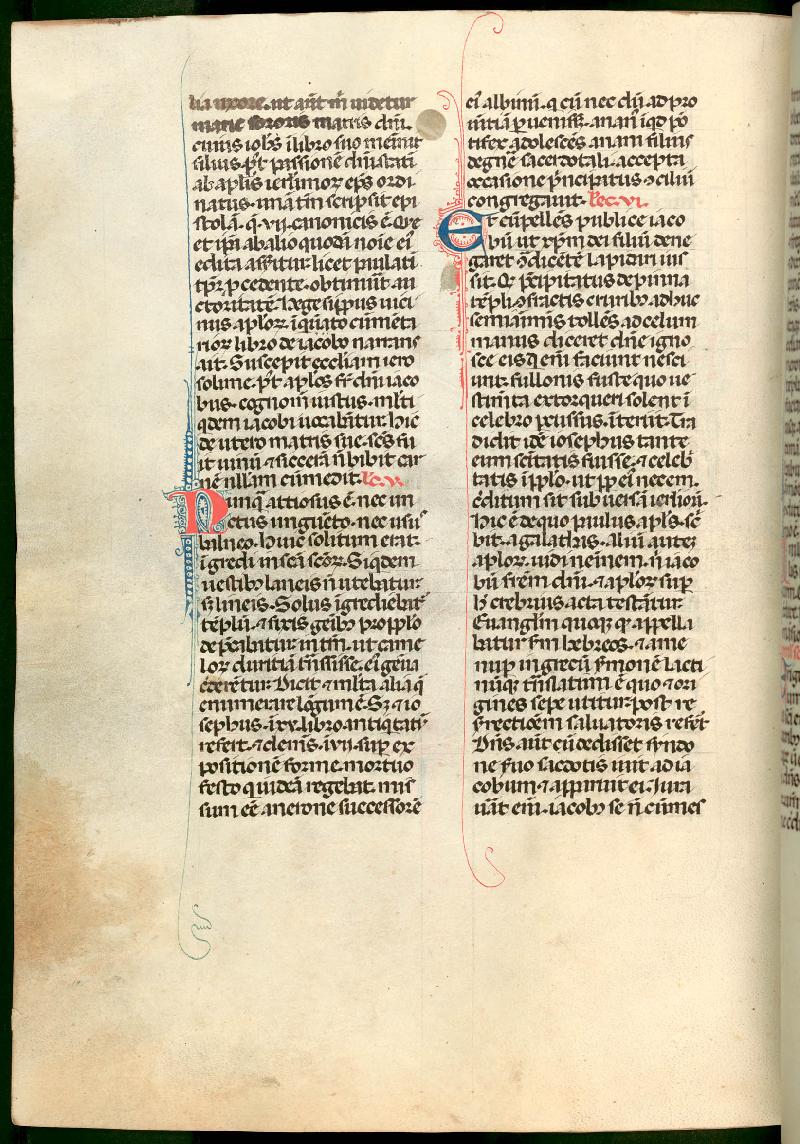 lia uxore. ut aut̄ m̄ uidetur
marie sororis matris dn̄i.
cuius ioh̄s ī libro suo meminit
filius. p̄t passionē dn̄i stati
ab ap̄lis ierl̄imoꝝ ep̄s ordi
natus. unā tm̄ scripsit epi
stolā. q̄ .vii. canonicis ē. Que
et ip̄a ab alio quodā noīe ei'
edita asserit̄ur. licet paulati
tp̄r̄ p̄cedente. obtinuit au
ctoritatē. Hegesippus uici
nus ap̄loꝝ. ī quīto cūmēta
rioꝝ libro de iacobo narrans
ait. Suscepit ecclīam iero
solime. p̄t ap̄los fr̄ dn̄i iaco
bus. cognom̄ iustus. ml̄ti
q̄dem iacobi uocabūtur. hic
de utero matris sue sc̄s fu
it uinū ⁊ siccerā n̄ bibit car
nē nullam cūmedit. Lec. v.
Nunq̄ attōsus ē. nec un
ctus unguēto. nec usus
balneo. huic solitum erat.
īgredi in sc̄a sc̄oꝝ. Siq̄dem
uestibꝫ laneis n̄ utebatur
s̄ lineis. Solus īgrediebat̄
tēplū. ⁊ fixis genibꝫ pro pplo
dep̄cabatur. in tm̄. ut came
loꝝ duritiā tn̄sisse. ei' genua
crēderētur. Dicit ⁊ ml̄ta alia q̄
enumerare lōgum ē. Sꝫ ⁊ io
sephus. ī .xx. libro antiq̄tatū
refert. ⁊ clem̄s. ī .vii. sup̄ ex
positionē forme. mortuo
festo qui iudeā regebat. mis
sum eē a nerone successorē
ei' albinū. q̄ cū nec dū ad pro
uītiā p̄uenisset. anan' īqd pō
tifex adolescēs. anani filius
de gn̄e sacerdotali. accepta
occasione p̄ncipatus 9ciliū
congregauit. Lec. vi.
Et cūpellēs publice iaco
bū ut xp̄m dei filiū dene
garet 9̄dicētē lapidari ius
sit. Q' p̄cipitatus de pinna
tēpli. 9fractis cruribꝫ adhuc
semianimis tollēs ad celum
manus diceret. dn̄e igno
sce eis q̄ em̄ faciunt nesci
unt. fullonis fuste quo ue
stim̄ta extorqueri solent ī
celebro p̄cussus. īteriit. Tra
didit idē iosephus tante
eum sc̄itatis fuisse. ⁊ celeb
tatis ī pplo. ut pp̄ ei' necem.
c̄ditum sit subuersā ierl̄im̄.
Hic ē de quo paulus ap̄ls sc̄
bit. a galathis. Aliū autē
ap̄loꝝ. uidi neīnem. n̄ iaco
bū fr̄em dn̄i. ⁊ ap̄loꝝ sup̄
h' crebrius acta testātur.
Euanḡliū quoqꝫ q' appella
batur sm̄ hebreos. ⁊ a me
nup̄ in grecū s̄monē lati
nūqꝫ tn̄slatum ē quo ⁊ ori
genes sepe utitur. post re
s̄rectiōem saluatoris refert.
Dn̄s aut̄ cū dedisset sindo
ne suo sac̄dotis iuit ad ia
cobum ⁊ apparuit ei. Iura
uāt em̄. iacobꝫ se n̄ cūmes